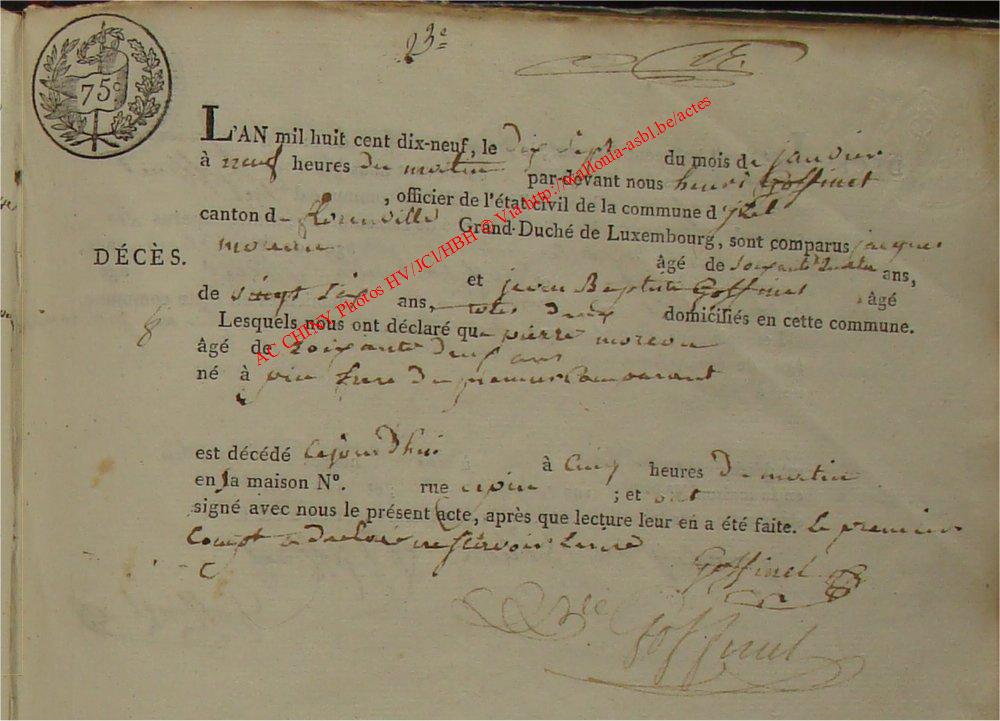 23e
75c
L'AN mil huit cent dix-neuf, le dix sept du mois de janvier
à neuf heures du matin par-devant nous henri Goffinet
, officier de l'état civil de la commune d'izel
canton de florenville Grand-Duché de Luxembourg, sont comparus jacques
DÉCÈS.
moreau âgé de soixante quatre ans,
et jean Baptiste Goffinet , âgé
de vingt six ans, domiciliés en cette commune.
Lesquels nous ont déclaré que pierre moreau
âgé de soixante deux ans
né à pin frere du premier Comparant
est décédé cejourdhui à Cinq heures du matin
en sa maison N°. rue a pin ; et ont
signé avec nous le présent acte, après que lecture leur en a été faite. le premier
Compt a declaré ne scavoir
Goffinet
Goffinet
AC CHINY Photos HV/JCl/HBH © Via http://wallonia-asbl.be/actes